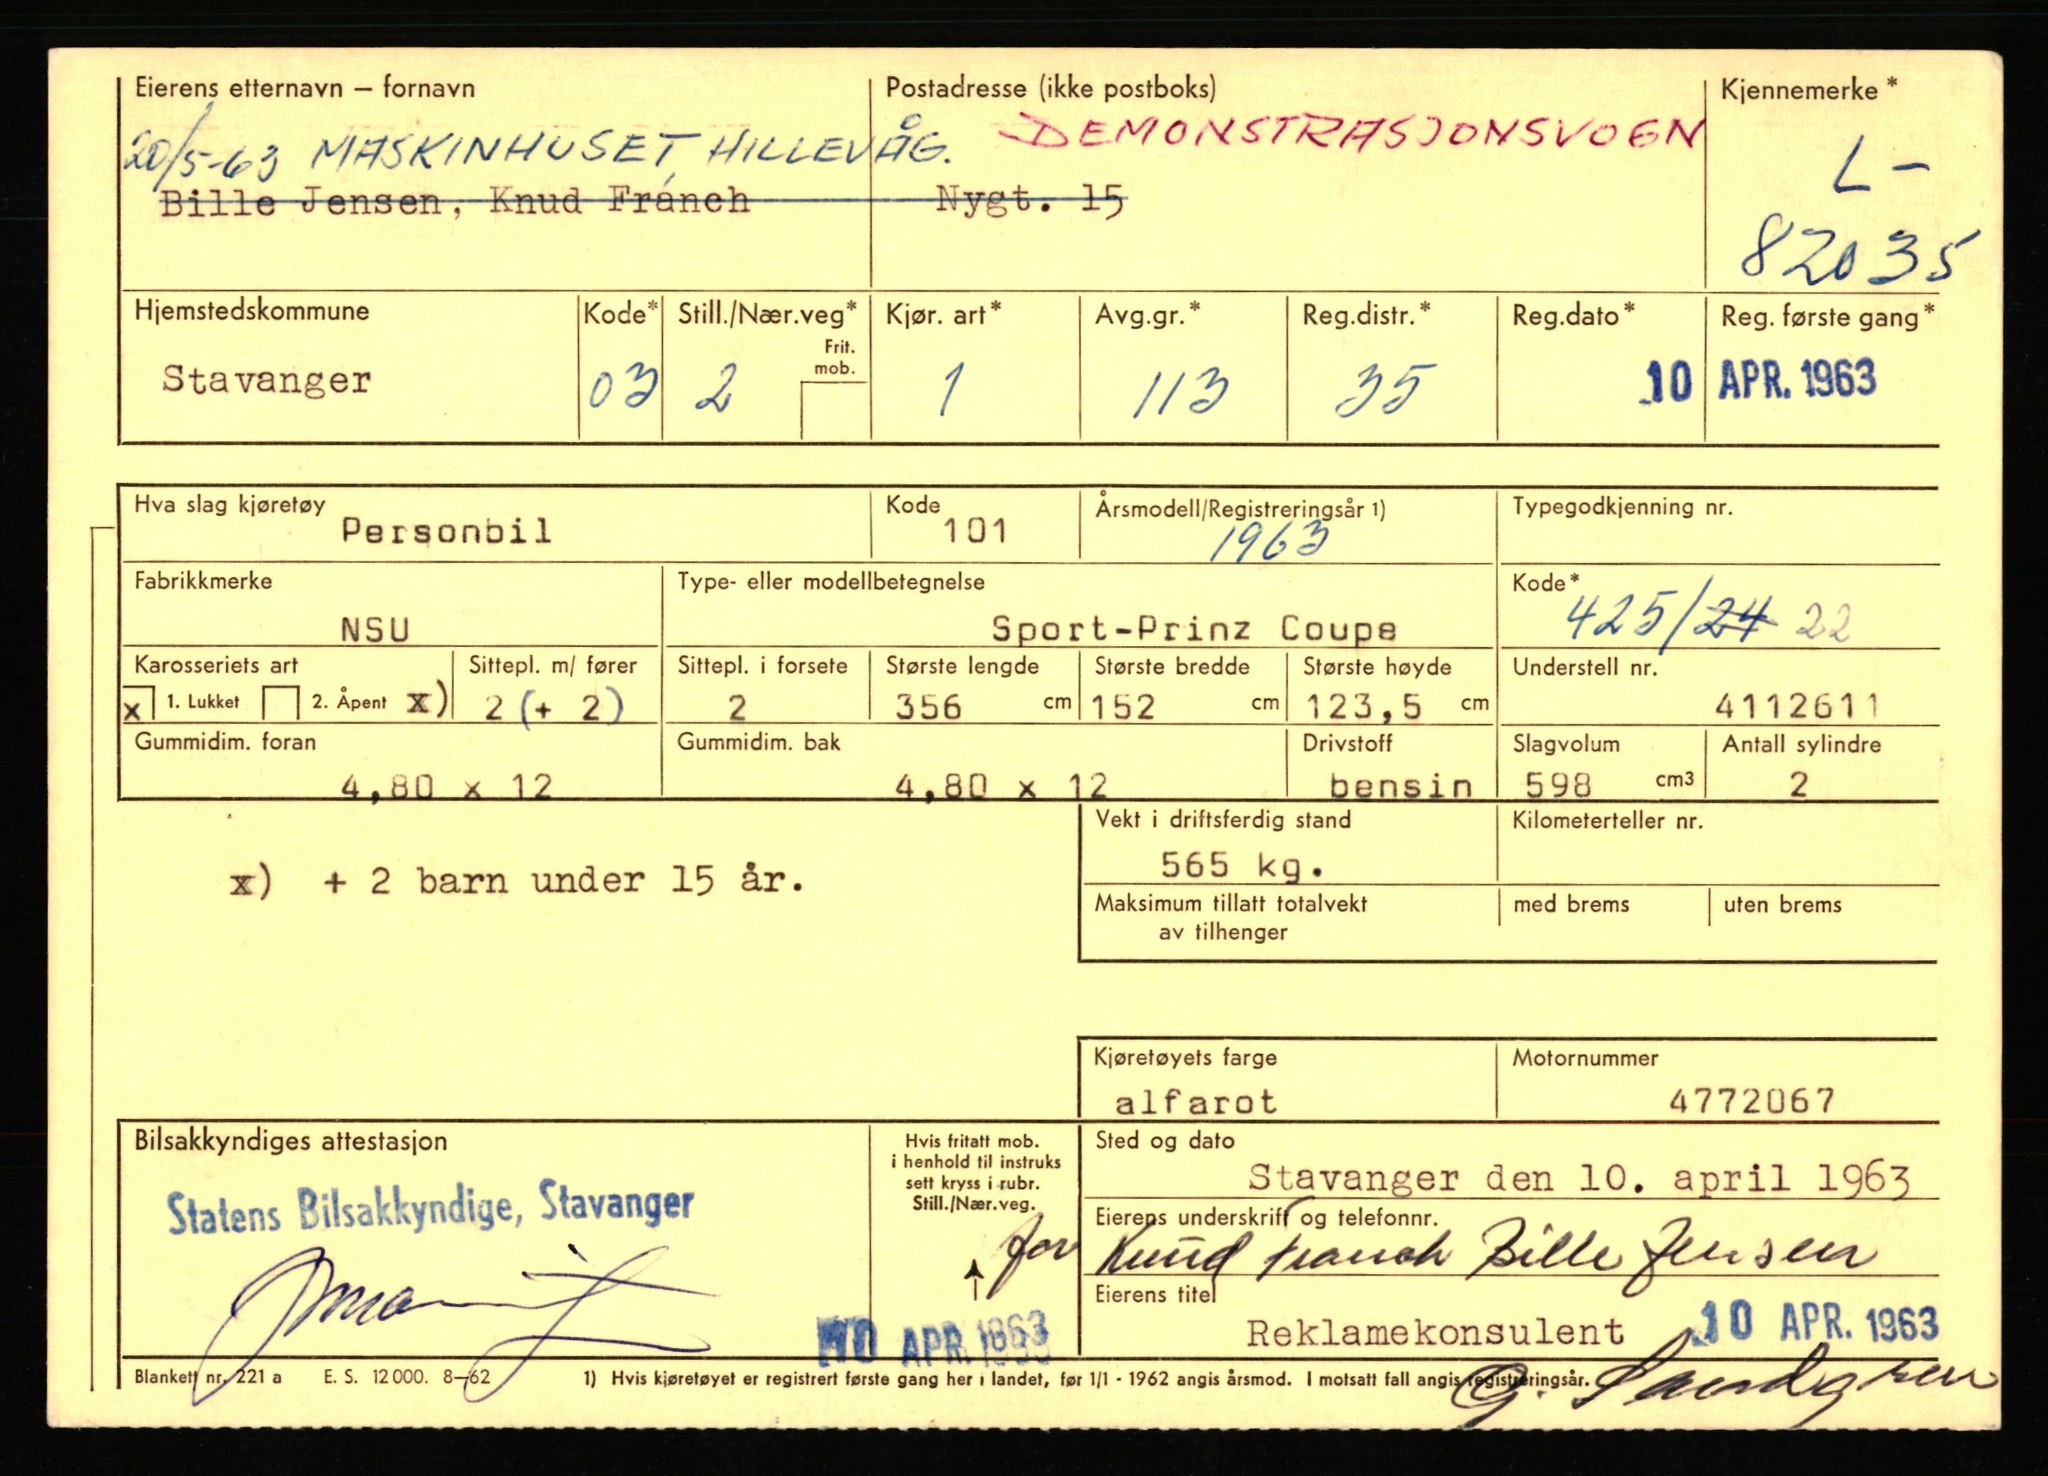 Eierens etternavn – fornavn Postadresse (ikke postboks) Kjennemerke *
20/5-63 MASKINHUSET, HILLEVÅG. DEMONSTRASJONSVOGN L-
Bille Jensen, Knud Fránch Nygt. 15
82035
Hjemstedskommune Kode* Still./Nær.veg* Kjør. art* Avg.gr.* Reg.distr.* Reg.dato* Reg. første gang*
Frit.
mob.
Stavanger 03 2 1 113 35 10 APR. 1963
Hva slag kjøretøy Kode Årsmodell/Registreringsår 1) Typegodkjenning nr.
Personbil 101 1963
Fabrikkmerke Type- eller modellbetegnelse Kode*
NSU Sport-Prinz Coupe 425/24 22
Karosseriets art Sittepl. m/ fører Sittepl. i forsete Største lengde Største bredde Største høyde Understell nr.
x 1. Lukket 2. Åpent x) 2 (+ 2) 2 356 cm 152 cm 123,5 cm 4112611
Gummidim. foran Gummidim. bak Drivstoff Slagvolum Antall sylindre
4,80 x 12 4,80 x 12 bensin 598 cm3 2
Vekt i driftsferdig stand Kilometerteller nr.
565 kg.
x) + 2 barn under 15 år.
Maksimum tillatt totalvekt med brems uten brems
av tilhenger
Kjøretøyets farge Motornummer
alfarot 4772067
Bilsakkyndiges attestasjon Hvis fritatt mob. Sted og dato
i henhold til instruks
sett kryss i rubr.
Still./Nær.veg.
Stavanger den 10. april 1963
Statens Bilsakkyndige, Stavanger
Eierens underskrift og telefonnr.
for Knud Franch Bille Jensen
Eierens titel
Reklamekonsulent 10 APR. 1963
10 APR. 1963
Blankett nr. 221 a E. S. 12000. 8–62 1) Hvis kjøretøyet er registrert første gang her i landet, før 1/1 - 1962 angis årsmod. I motsatt fall angis registreringsår.
G. Sandgren